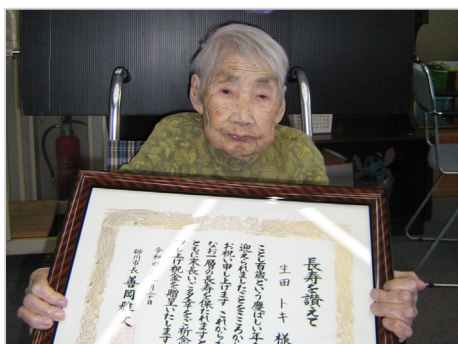 長寿を讃えて
生田 トキ 様
ことし百歳という慶ばしい年
迎えられましたことを心から
お祝い申し上げます これから
なお一層の長寿を保たれます
ともに末長いご多幸をご祈念
し上げ祝金を贈呈いたします
令和
月 十日
砂川市長 善岡雅文